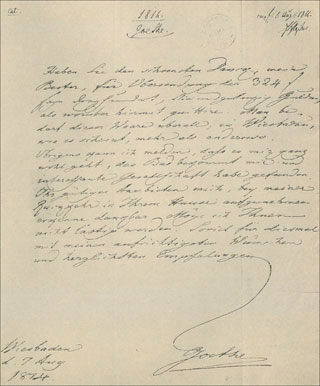 1814.
Goethe.
Haben Sie den schönsten Dank, mein
Bester, für Übersendung der 324 f
sage Dreyhundert, vier und zwanzig Gulden,
als worüber hiermit quittire. Man be-
darf dieser Waare überall, in Wiesbaden,
wie es scheint, mehr als anderswo
Übrigens kann ich melden, daß es mir ganz
wohl geht, das Bad bekommt mir und
interessante Gesellschaft habe gefunden
Ihr gütiges Anerbieten mich, bey meiner
Rückkehr in Ihrem Hause aufzunehmen
erkenne dankbar. Möge ich Ihnen
nicht lästig werden. Soviel für diesmal
mit meinen aufrichtigsten Wünschen
und herzlichsten Empfelungen
Goethe
Wiesbaden
d. 7 Aug
1814